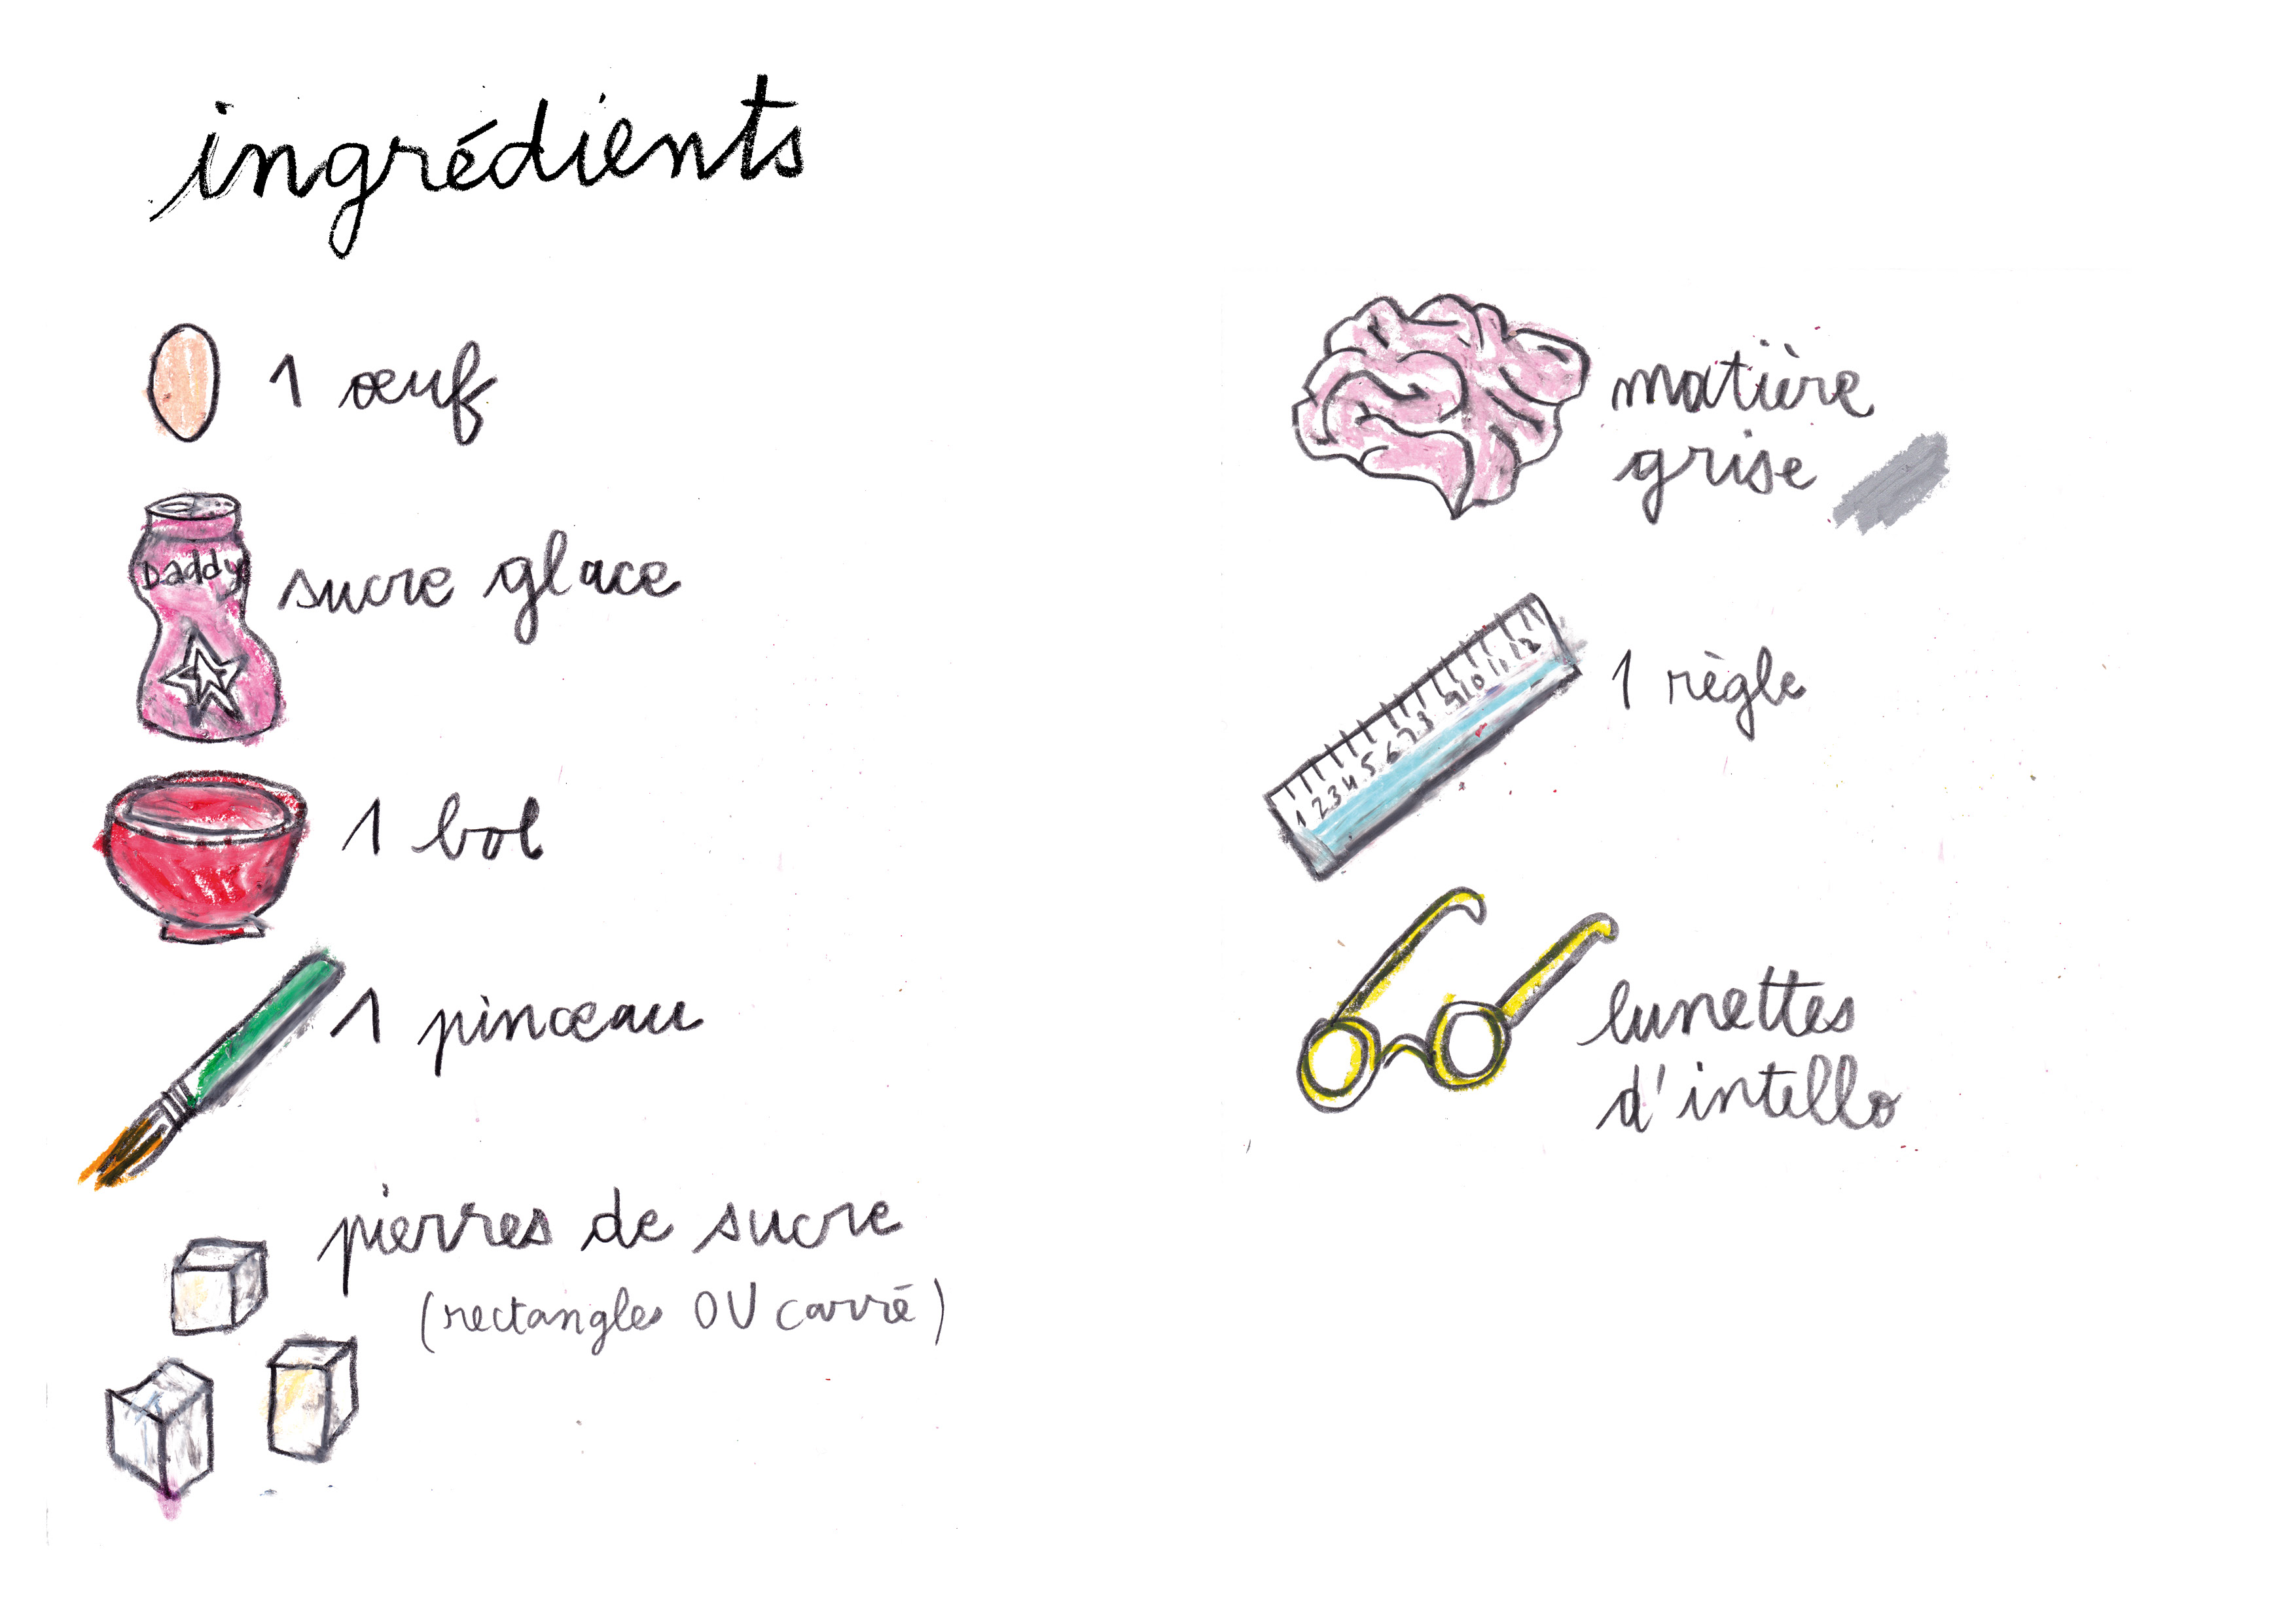 ingrédients
1 œuf
Daddy
sucre glace
1 bol
1 pinceau
pierres de sucre
(rectangles OU carré)
matière
grise
1 2 3 4 5 6 7 8 9 10 11 12
1 règle
lunettes
d'intello